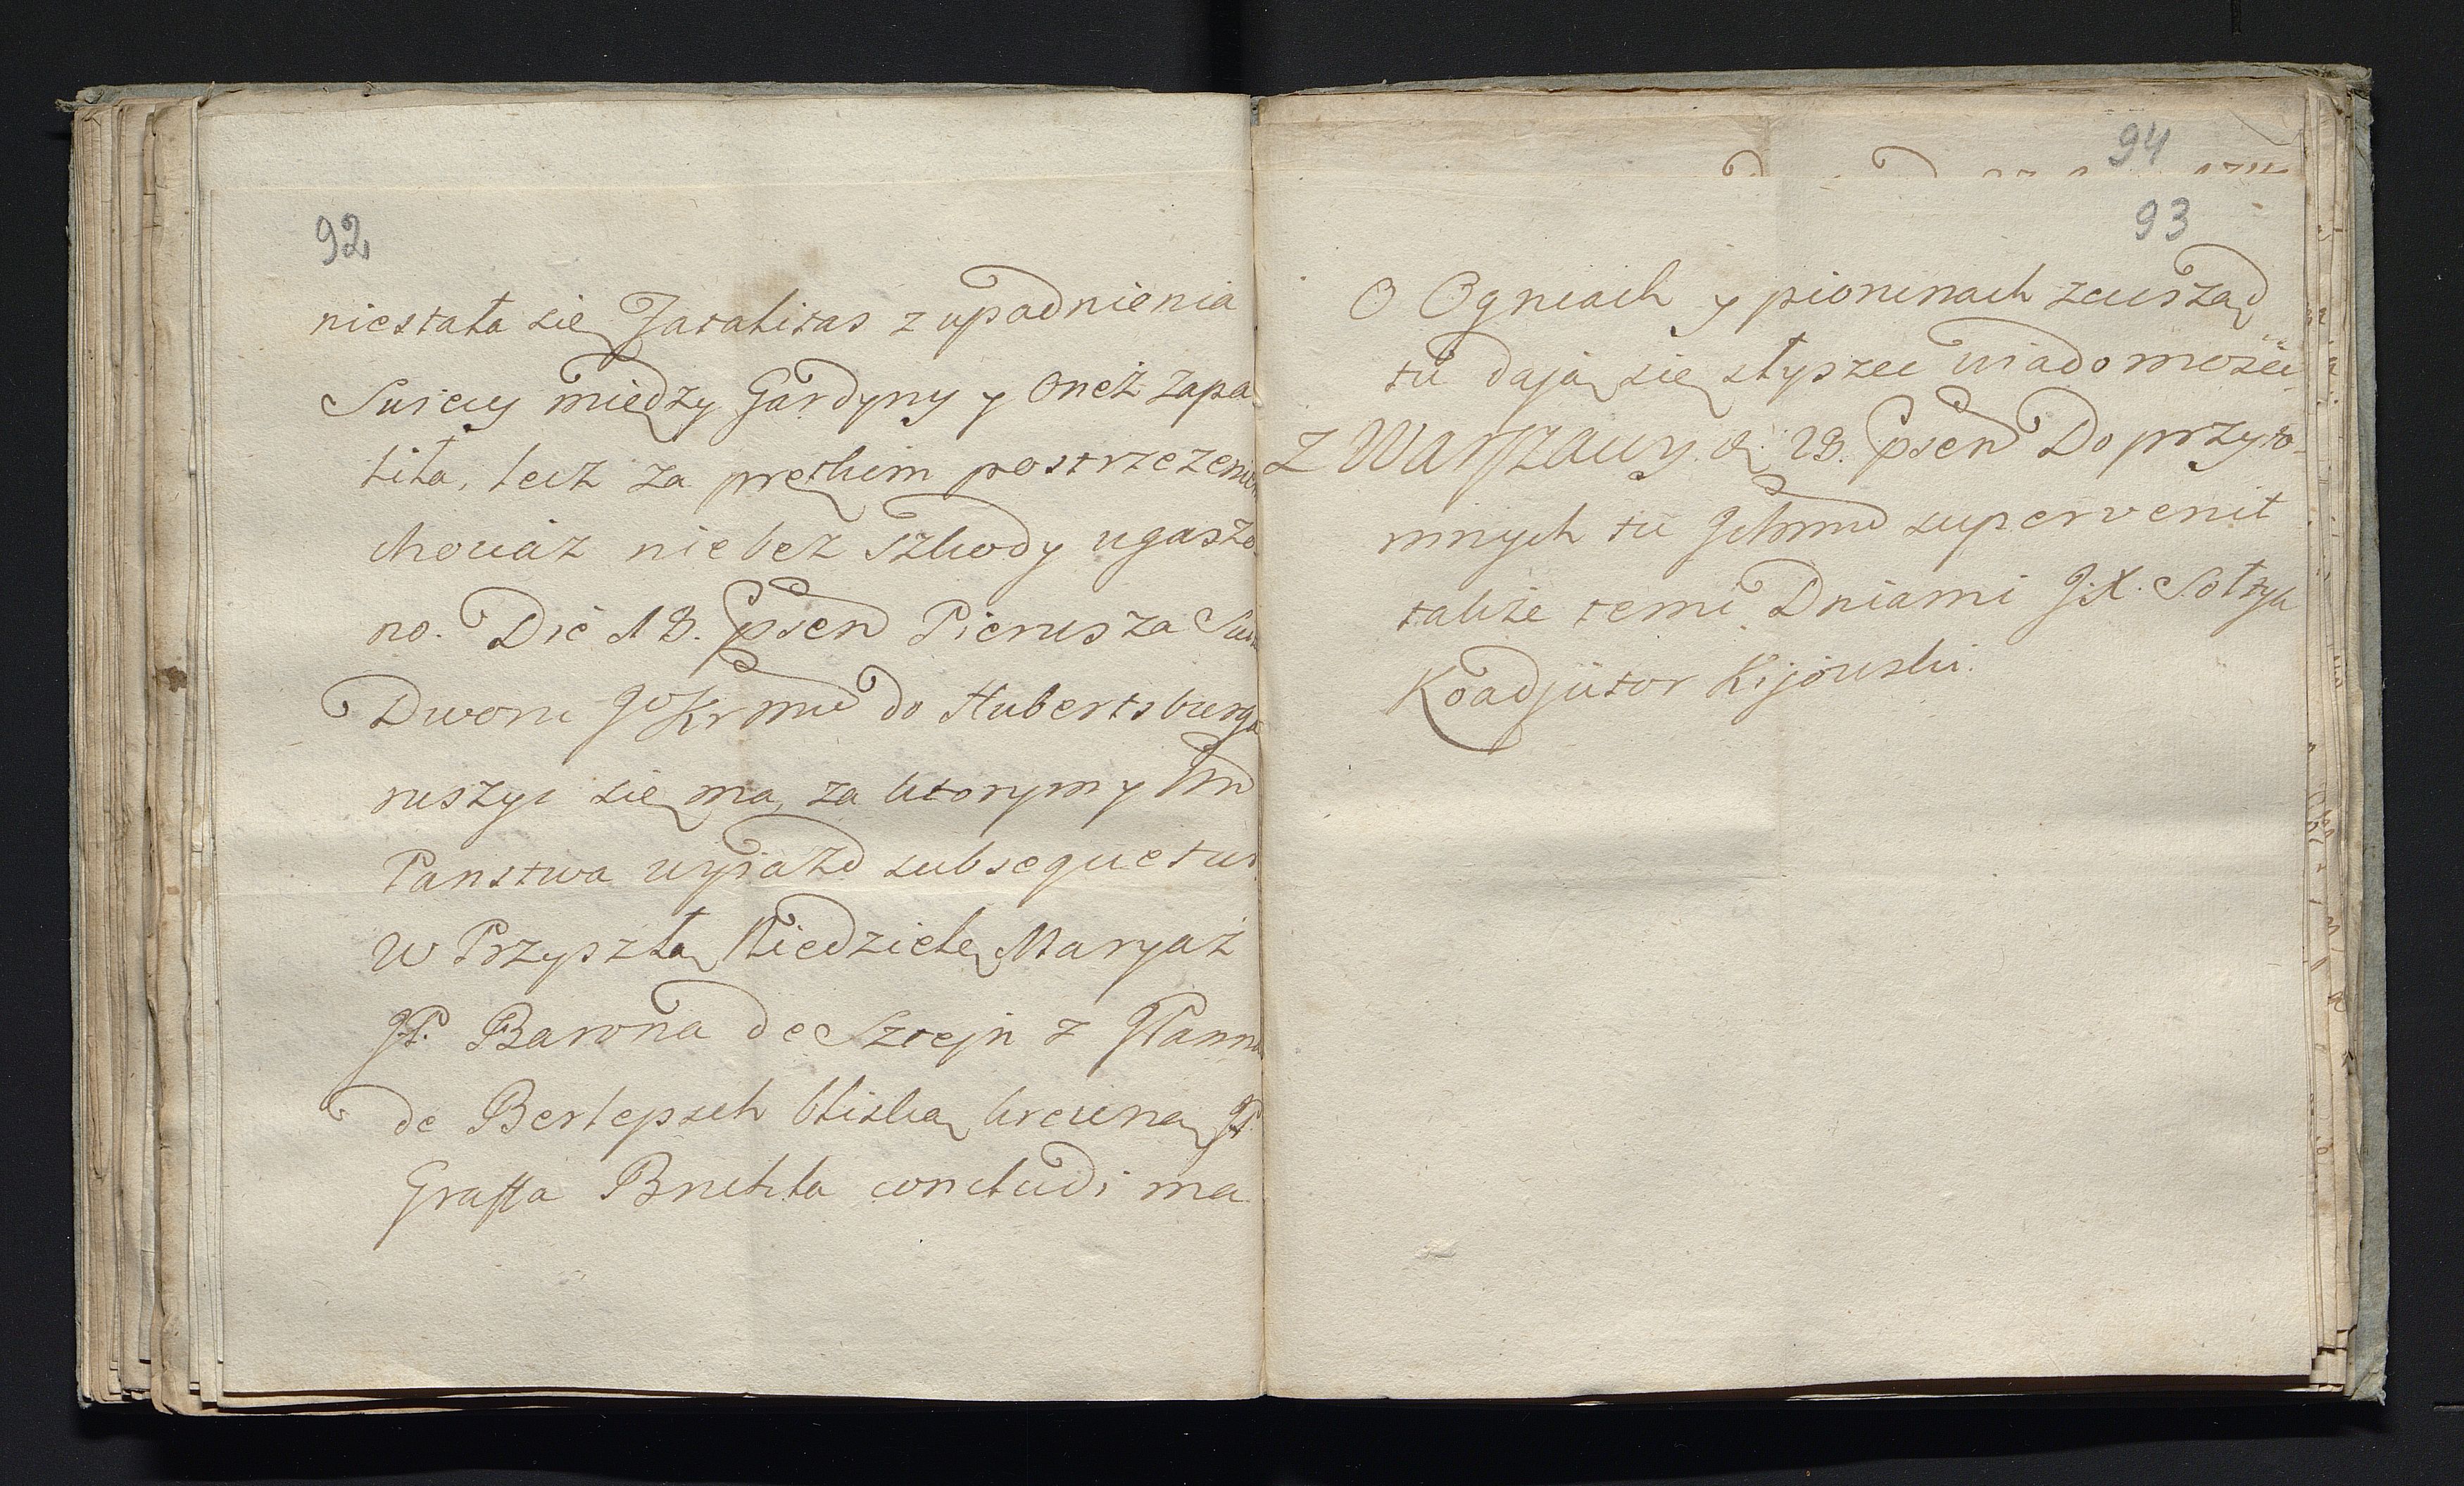 92
niestała się Fatalitas z upadnienia
Swiecy między Gardyny y Oneż zapa
liła, lecz za prętkim postrzezeni
chociaż nie bez szkody ugaszo
no. Die 18. psen Pierwsza
Dworu JoKrmci do Hubertsburga
ruszyć się ma, za ktorym y
Panstwa wyiazd subsequetur
W Przyszłą Niedzielę Maryaż
JP. Barona de Sztejn z JPanną
de Berlepsch bliską krewną JP.
Graffa Bruhla concludi ma
94
93
O Ogniach y piorunach zewsząd
tu dają się słyszeć wiadomości
Z Warszawy d. 28. psen Do przyto-
mnych tu Jchmci supervenit
także temi Dniami J.X. Sołtyk
Koadjutor Kijowski.